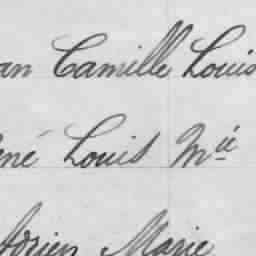 an Camille Louis
ené Louis Mie
Adrien Marie